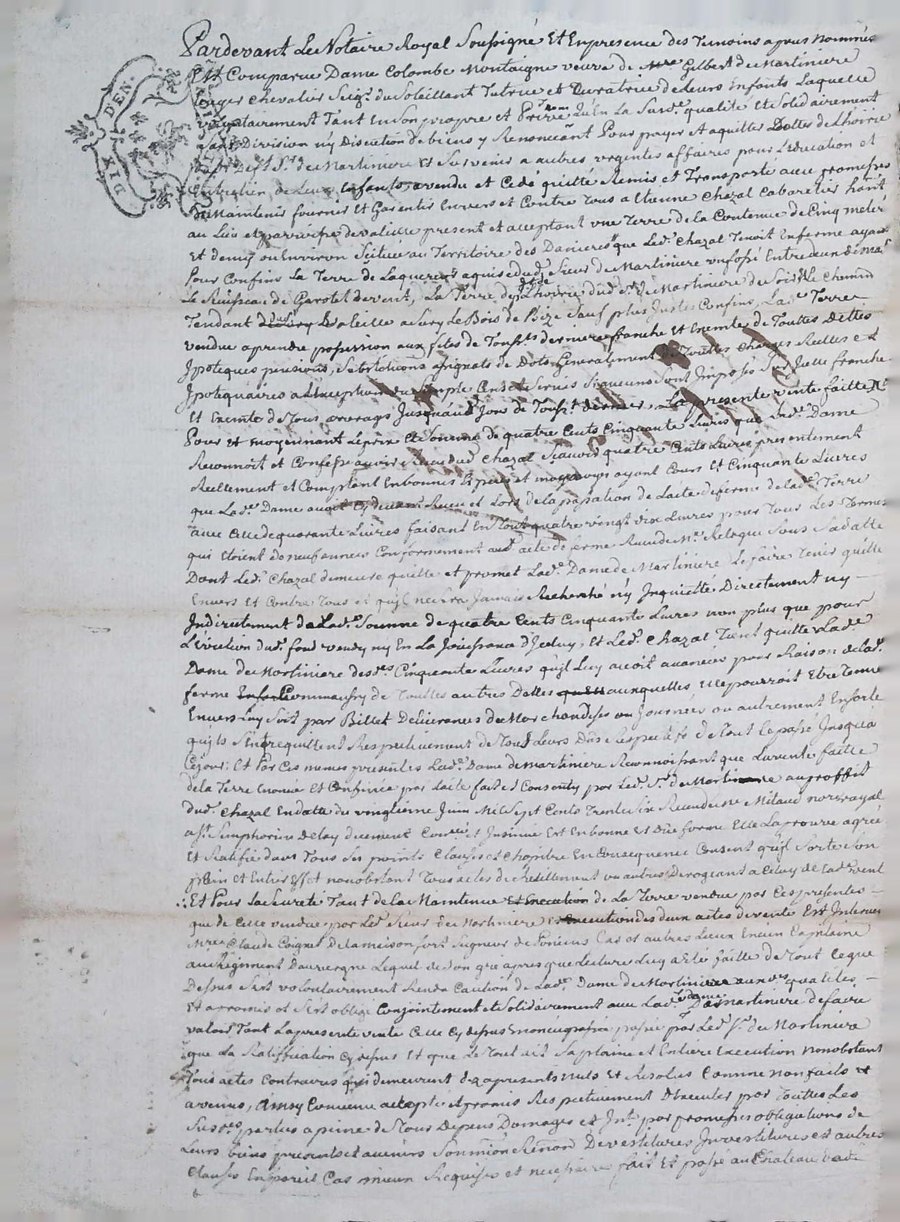 DIX DEN.
Pardevant Le Notaire Royal Soussigné Et Enpresence des Temoins apres Nommés
Est Comparue Dame Colombe Montaigne veuve de Mre Gilbert de Martiniere
Chevalier Seigr. du Soleillant Tutrice et Curatrice de leurs Enfants Laquelle
Tant En Son propre et Privé nom qu'En La Susde. qualité et Solidairement
Sans Division ny Discution de biens y Renoncent Pour payer Et aquitter Dettes de Lhoirie
dudt. Sr. de Martiniere Et Subvenir a autres urgentes affaires pour L'éducation et
Entretien de Leurs Enfants, a vendu et Cedé quitté Remis et Transporté avec promesses
de Maintenir fournir Et Garentir Envers et Contre Tous a Etienne Chazal Cabaretier habt.
au Lieu et parroisse de present et acceptant une Terre de la Contenue de Cinq
Et demy ou Environ Scituée au Territoire des que Ledt. Chazal Tenoit En ferme ayant
Pour Confins La Terre de Sieur de Martiniere un fossé Entre deux
Le Ruisseau de La Terre de Lhoirie dudt. Sr. de Martiniere Le Chemin
Tendant a Sury Le Bois de Sauf plus Justes Confins, Lade. Terre
vendue a prendre possession aux fetes de Toussts. derniere franche et Exemte de Touttes Dettes
Ipoteques pensions, Substitutions assignats de Dots Generalement de Touttes Charges Reelles et
Ipotequaires a L'exception du Simple Cens et Servis Si aucuns Sont Imposés Sur Icelle franche
Et Exemte de Tous arrerages Jusqu'aud. Jour de Toussts. derniere. La presente vente faitte
Pour et moyennant Le prix et Somme de quatre Cents Cinquante Livres que Lade. Dame
Reconnoit et Confesse avoir Recu dud. Chazal Scavoir quatre Cents Livres presentement
Reellement et Comptant En bonnes Especes et monnoyes ayant Cours Et Cinquante Livres
que Lade. Dame avoit Cy devant Recu et Lors de la passation de L'acte de ferme de lade. Terre
avec Celle de quarante Livres faisant En Tout quatre vingt dix Livres pour Tous Les Termes
qui Etoient de neuf années Conformement aud. acte de ferme Recu de Me. Relogue Sous Sa datte
Dont Ledt. Chazal demeure quitte et promet Lade. Dame de Martiniere Le faire Tenir quitte
Envers Et Contre Tous et qu'il ne Sera Jamais Recherché ny Inquietté Directement ny
Indirectement de Lade. Somme de quatre Cents Cinquante Livres non plus que pour
L'eviction dud. fond vendu ny En La Jouissance d'Iceluy, Et Ledt. Chazal Tient quitte Lade.
Dame de Martiniere desdes. Cinquante Livres qu'il Luy avoit avancées pour Raison de lade.
ferme Comm'aussy de Touttes autres Dettes auxquelles Elle pourroit Etre Tenue
Envers Luy Soit par Billet Delivrances de Marchandises ou Journées ou autrement En sorte
qu'ils S'entrequittent Respectivement de Tous Leurs Dus Respectifs de Tout Le passé Jusqu'a
Ce jour: Et Par Ces memes presentes Lade. Dame de Martiniere Reconnoissant que La vente faitte
de la Terre Enoncée Et Confinée par L'acte fait et Consenty par Ledt. Sr. de Martiniere au proffit
dud. Chazal En datte du vingtieme Juin Mil Sept Cents Trente Six Recu de Me Milaud notre. royal
a St. Simphorien de Lay duement Controlé et Insinué Est En bonne et Due forme Elle L'aprouve agrée
Et Ratifié dans Tous Ses points Clauses et Chapitre En Consequence Consent qu'il Sorte Son
plein et Entier Effet nonobstant Tous actes de ou autres Derogeans a Celuy de lade. vente
Et Pour La Sureté Tant de la Maintenue de La Terre vendue par Ces presentes
que de Celle vendue par Ledt. Sieur de Martiniere Execution des deux actes de vente Est Intervenu
Mre. Claude Coignet de la maison fort Seigneur de Poncins Cas et autres Lieux Encien Capitaine
au Regiment Dauvergne Lequel de Son gré apres que Lecture Luy a Eté faitte de Tout Ce que
Dessus S'est volontairement Rendu Caution de Lade. Dame de Martiniere qualités
Et a promis et S'est obligé Conjointement et Solidairement avec Lade. Dame de Martiniere de faire
valoir Tant La presente vente Celle Cy dessus Enoncée passée par Ledt. Sr. de Martiniere
que La Ratiffication Cy dessus Et que Le Tout ait Sa plaine et Entiere Execution nonobstant
Tous actes Contraires qui demeurent des apresents nuls Et Resolus Comme non faits et
avenus, Ainsy Convenu accepté et promis Respectivement Observer par Touttes Les
Susdes. parties a peine de Tous Depens Domages et Intts. par promesses obligations de
Leurs biens presents et avenirs Soumision Renon. Devestitures Investitures et autres
Clauses En pareil Cas mieux Requises et necessaires fait Et passé au Chateau de